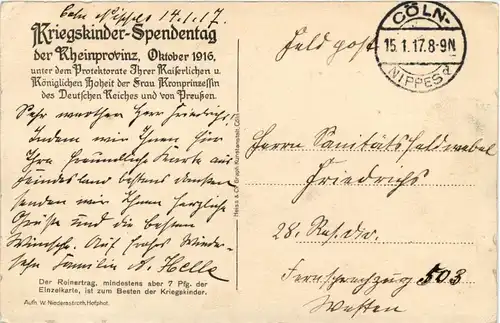 Cöln Nippes 14.1.17.
Kriegskinder-Spendentag
der Rheinprovinz, Oktober 1916,
unter dem Protektorate Ihrer Kaiserlichen u.
Königlichen Hoheit der Frau Kronprinzessin
des Deutschen Reiches und von Preußen.
Sehr werther Herr Friedrichs,
Indem wir Ihnen für
Ihre freundliche Karte aus
Feindesland bestens danken
senden wir Ihnen herzliche
Grüße und die besten
Wünsche. Auf frohes Wieder-
sehn Familie A. Helle
Der Reinertrag, mindestens aber 7 Pfg. der
Einzelkarte, ist zum Besten der Kriegskinder.
Aufn. W. Niederastroth, Hofphot.
Feldpost
CÖLN-
15.1.17.8-9N
NIPPES
Herrn Sanitätsfeldwebel
Friedrichs
28. Res. Div.
Fernsprechzug 503
Westen